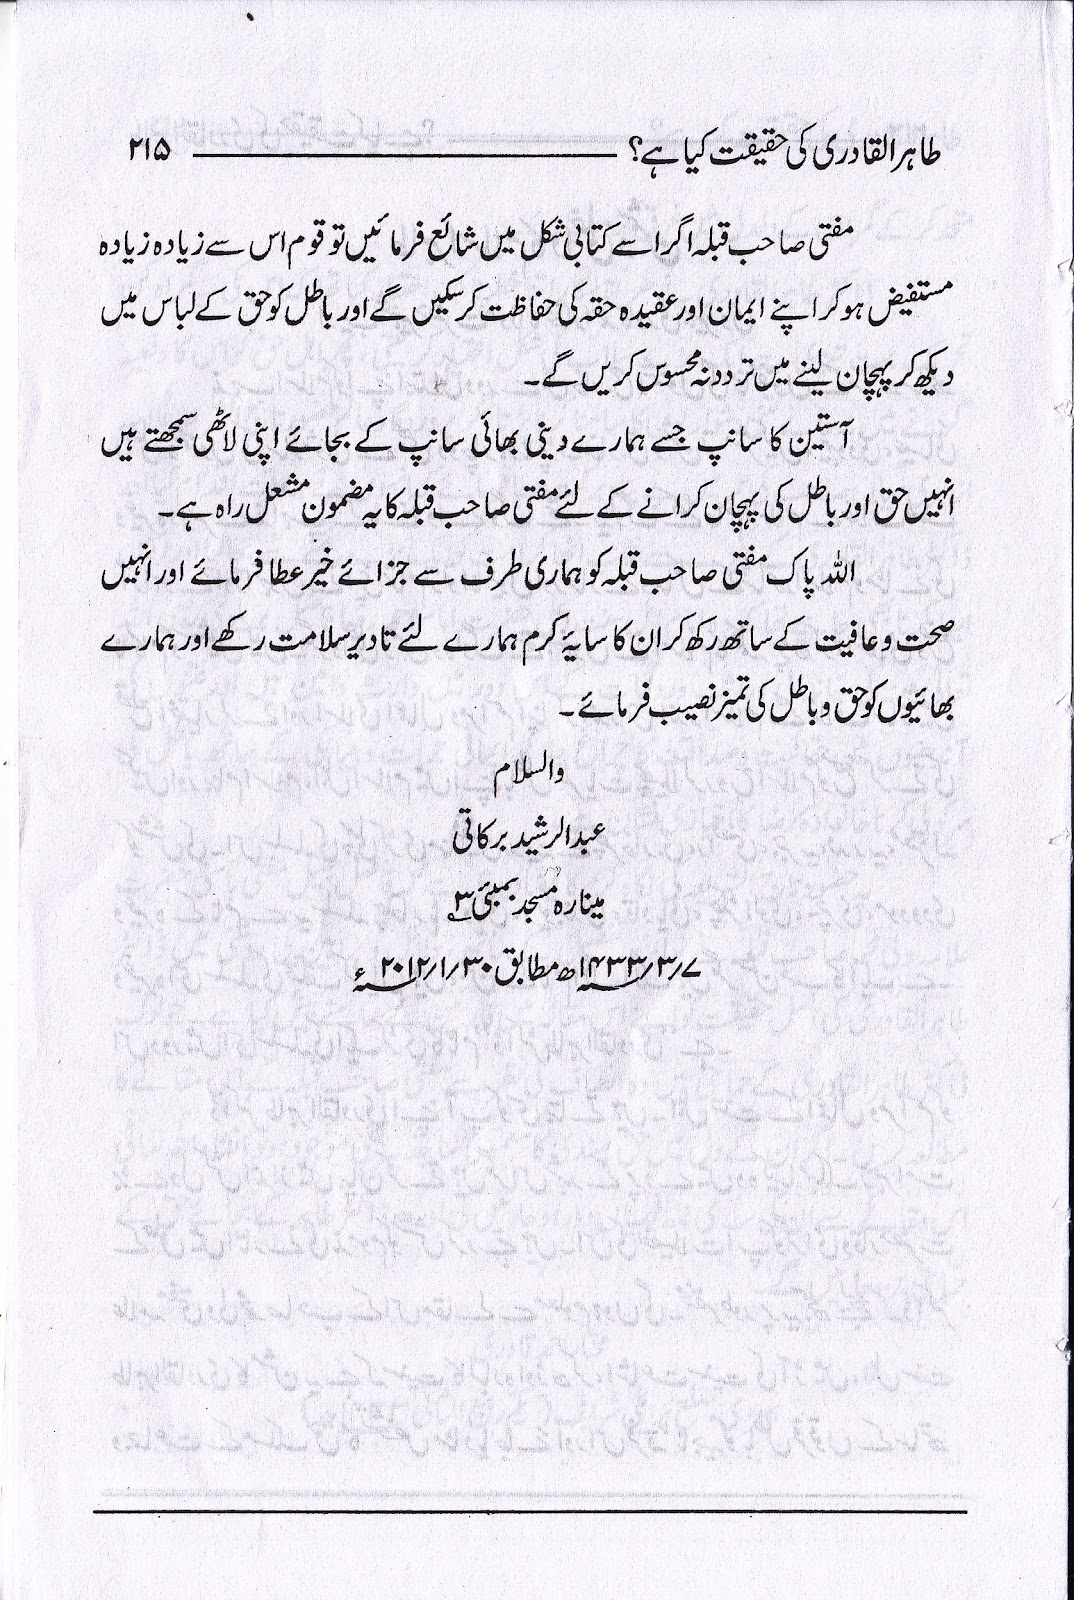 طاہر القادری کی حقیقت کیا ہے؟ ۲۱۵
مفتی صاحب قبلہ اگر اسے کتابی شکل میں شائع فرمائیں تو قوم اس سے زیادہ زیادہ
مستفیض ہو کر اپنے ایمان اور عقیدہ حقہ کی حفاظت کر سکیں گے اور باطل کو حق کے لباس میں
دیکھ کر پہچان لینے میں تردد نہ محسوس کریں گے۔
آستین کا سانپ جسے ہمارے دینی بھائی سانپ کے بجائے اپنی لاٹھی سمجھتے ہیں
انہیں حق اور باطل کی پہچان کرانے کے لئے مفتی صاحب قبلہ کا یہ مضمون مشعل راہ ہے۔
اللہ پاک مفتی صاحب قبلہ کو ہماری طرف سے جزائے خیر عطا فرمائے اور انہیں
صحت و عافیت کے ساتھ رکھ کر ان کا سایۂ کرم ہمارے لئے تادیر سلامت رکھے اور ہمارے
بھائیوں کو حق و باطل کی تمیز نصیب فرمائے۔
والسلام
عبدالرشید برکاتی
مینارہ مسجد بمبئی ۳
۷؍۳؍۱۴۳۳ھ مطابق ۳۰؍۱؍۲۰۱۲ء